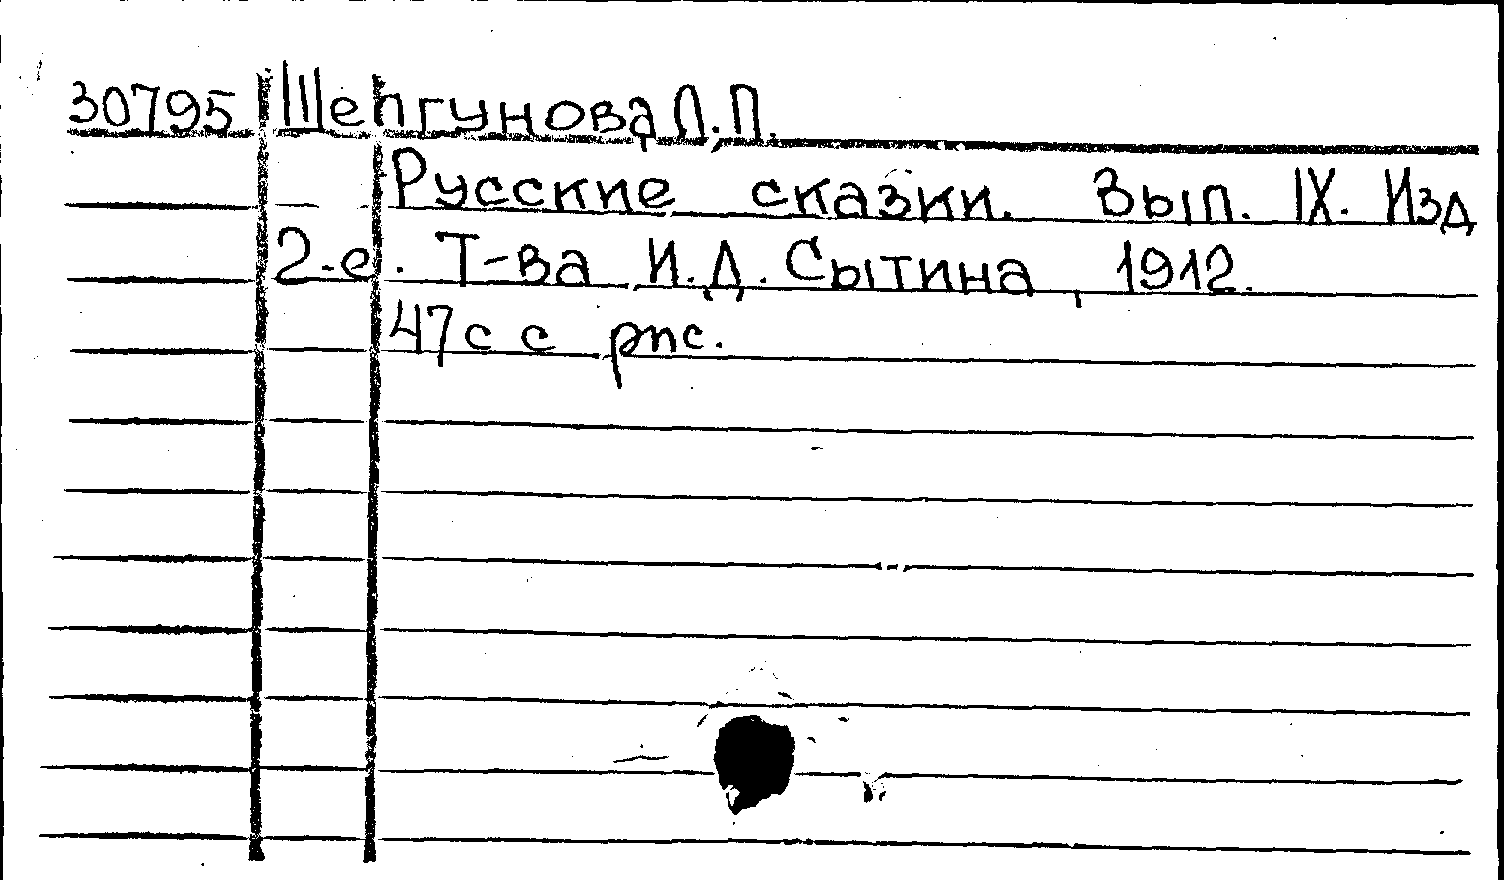 30795 Шелгунова Л.П.
Русские сказки. Вып. IX. Изд
2-е. Т-ва И.Д. Сытина, 1912.
47с с рис.